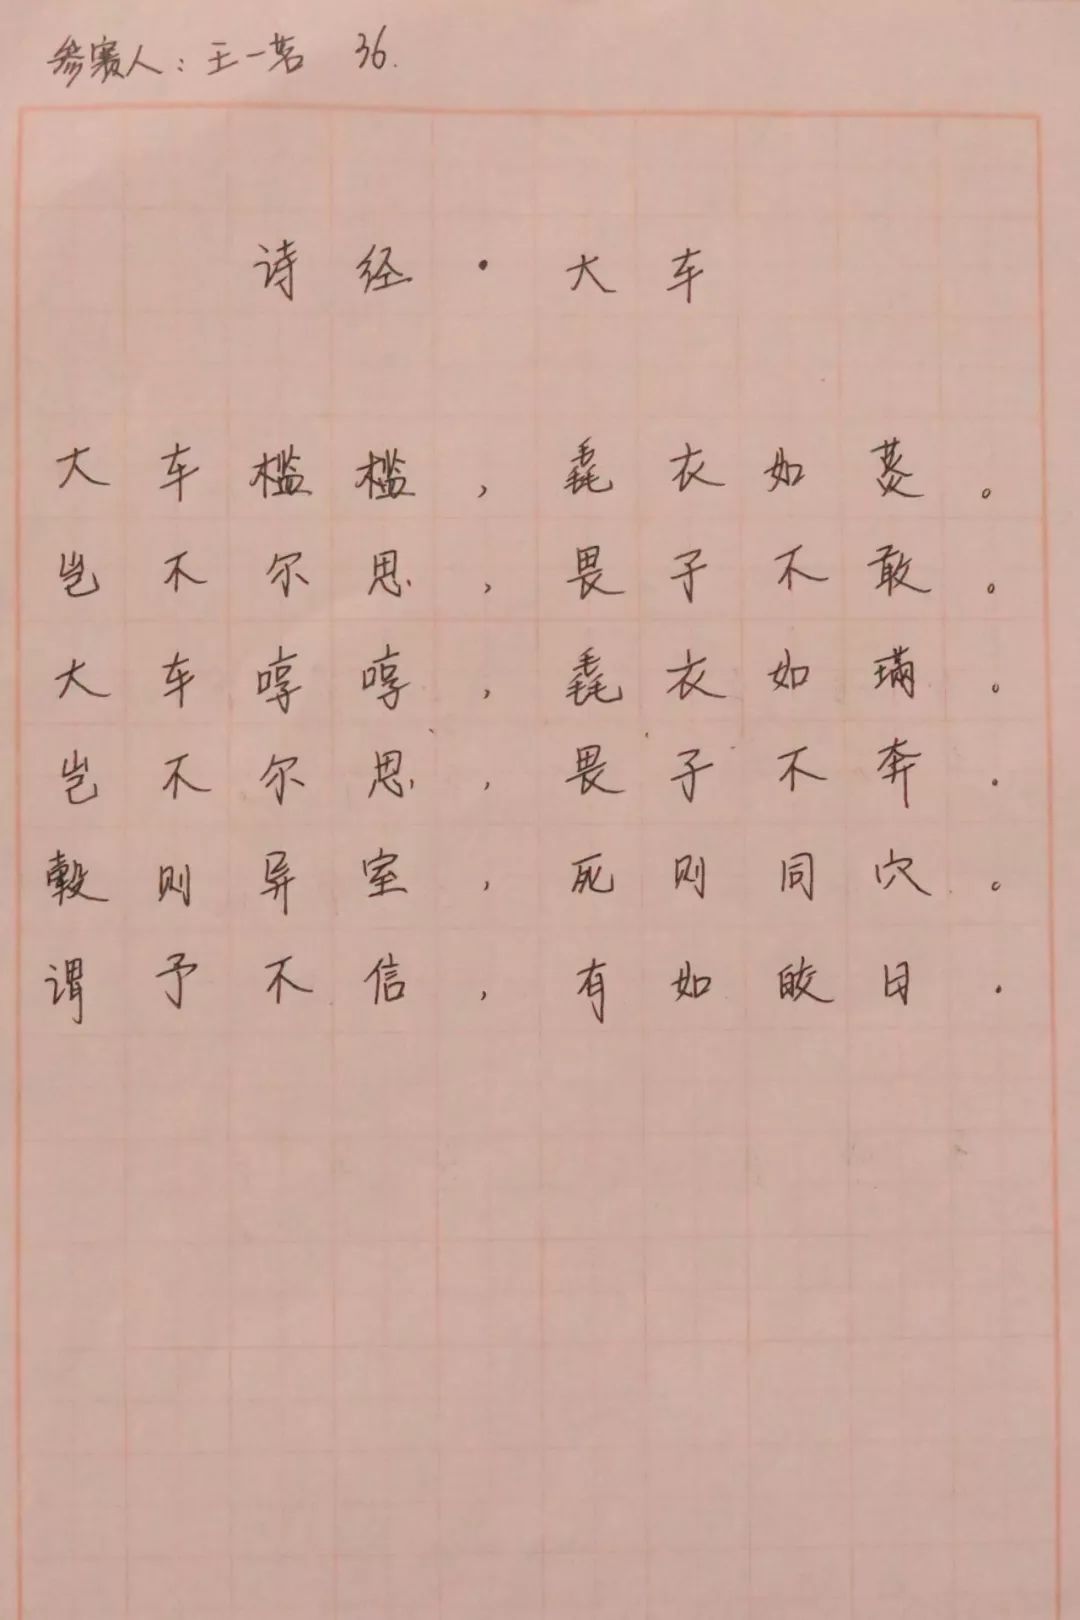 参赛人：王一茗 36.
诗经·大车
大车槛槛，毳衣如菼。
岂不尔思，畏子不敢。
大车啍啍，毳衣如璊。
岂不尔思，畏子不奔.
穀则异室，死则同穴。
谓予不信，有如皎日.